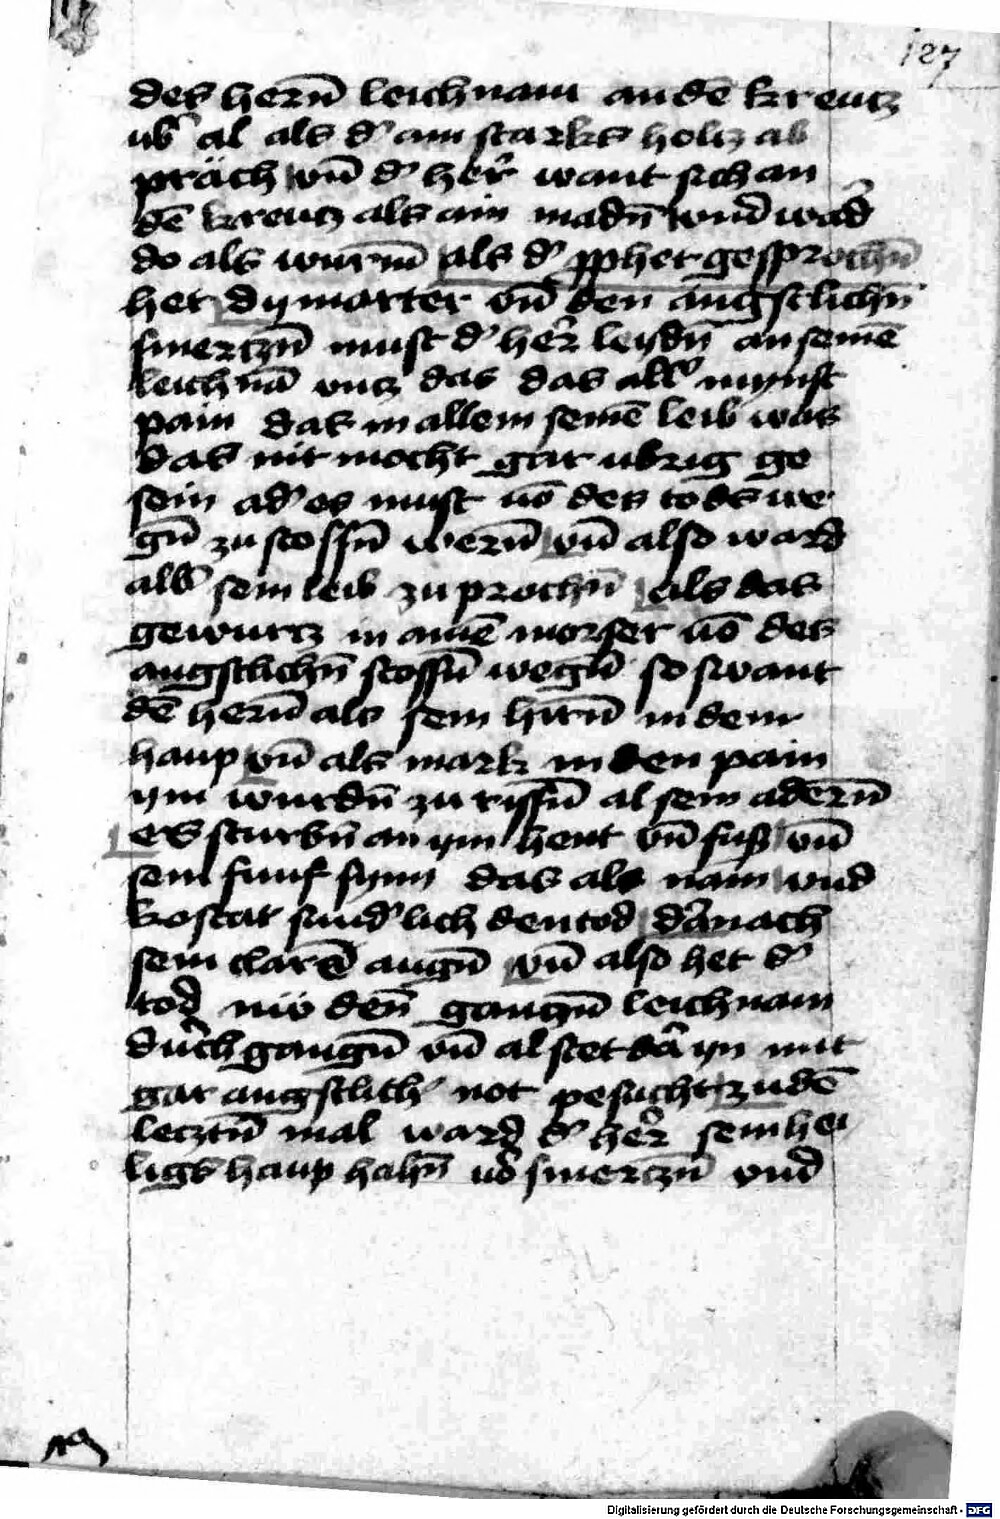 127
des hern̄ leichnam an dē kreutz
ub̾ al als d̾ ain starks holtz ab
präch vn̄ d̾ her̾ want sich an
dē kreutz als ain madn̄ vnd ward
do als wurm̄ als d̾ ꝓphet gesprochn̄
het dy marter vn̄ den angstlichn̄
smertzn̄ must d̾ her̾ leydn̄ an seinē
leichnā vntz das das all̾ mynst
pain das in allem seinē leib was
das nit mocht gar ubrig ge
sein ad̾ es must uō des tods we
gn̄ zu stossn̄ wern̄ vn̄ also ward
all̾ sein leib zu prochn̄ als das
gewurtz in ainē morser uō des
angstlichn̄ stossn̄ wegn̄ so swant
dē hern̄ als sein hirn̄ in dem
haup vn̄ als mark in den pain
ym wurdn̄ zu rissn̄ al sein adern̄
es sturbn̄ an ym hent vn̄ fuß vn̄
sein funf synn das als nam vnd
kostat sund̾lich den tod dānach
sein clarē augn̄ vn̄ also het d̾
tod nw den̄ gantzn̄ leichnam
durch gangn̄ vn̄ al stet dar̾ yn mit
gar angstlich̾ not pesucht zu dē
lecztn̄ mal ward d̾ her̾ sein hei
ligs haup haln̄ uō smertzn̄ vnd
Digitalisierung gefördert durch die Deutsche Forschungsgemeinschaft - DFG